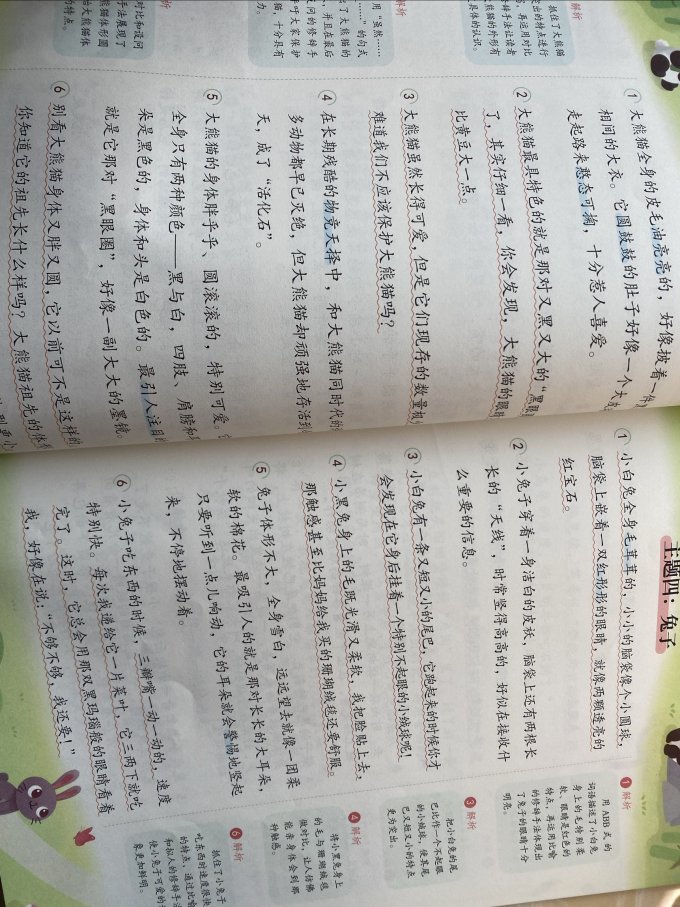 ① 大熊猫全身的皮毛油亮亮的，好像披着一件
相间的大衣。它圆鼓鼓的肚子好像一个大
走起路来憨态可掬，十分惹人喜爱。
② 大熊猫最具特色的就是那对又黑又大的“黑眼
了，其实仔细一看，你会发现，大熊猫的眼
比黄豆大一点。
③ 大熊猫虽然长得可爱，但是它们现存的数量
难道我们不应该保护大熊猫吗？
④ 在长期残酷的物竞天择中，和大熊猫同时代的
多动物都早已灭绝，但大熊猫却顽强地存活到
天，成了“活化石”。
⑤ 大熊猫的身体胖乎乎、圆滚滚的，特别可爱。
全身只有两种颜色——黑与白，四肢、肩膀和
朵是黑色的，身体和头是白色的。最引人注目
就是它那对“黑眼圈”，好像一副大大的墨镜。
⑥ 别看大熊猫身体又胖又圆，它以前可不是这样的
你知道它的祖先长什么样吗？大熊猫祖先的体
解析
抓住了大熊猫
突出的特点进行
，再运用对比
修辞手法让读者
熊猫的外形有
具体的认识。
解析
用“虽然……
……”的句式
了大熊猫的
，并且在最后
问的修辞手
吁大家保护
猫，十分具有
力。
解析
对比和设问
手法展现了
熊猫体形圆
大熊猫体
的特点。
主题四：兔子
① 小白兔全身毛茸茸的，小小的脑袋像个小圆球，
脑袋上嵌着一双红彤彤的眼睛，就像两颗透亮的
红宝石。
② 小兔子穿着一身洁白的皮袄，脑袋上还有两根长
长的“天线”，时常竖得高高的，好似在接收什
么重要的信息。
③ 小白兔有一条又短又小的尾巴，它跑起来的时候你才
会发现在它身后挂着一个特别不起眼的小绒球呢！
④ 小黑兔身上的毛既光滑又柔软，我把脸贴上去，
那触感甚至比妈妈给我买的珊瑚绒毯还要舒服。
⑤ 兔子体形不大，全身雪白，远远望去就像一团柔
软的棉花。最吸引人的就是那对长长的大耳朵，
只要听到一点儿响动，它的耳朵就会警惕地竖起
来，不停地摆动着。
⑥ 小兔子吃东西的时候，三瓣嘴一动一动的，速度
特别快。每次我递给它一片菜叶，它三两下就吃
完了。这时，它总会用那双黑玛瑙般的眼睛看着
我，好像在说：“不够不够，我还要！”
① 解析
用 ABB 式的
词语描述了小白兔
身上的毛特别柔
软、眼睛是红色的
特点，再运用比喻
的修辞手法体现出
了兔子的眼睛十分
明亮。
③ 解析
把小白兔的尾
巴比作一个不起眼
的小绒球，使其尾
巴又短又小的特点
更为突出。
④ 解析
将小黑兔身上
的毛与珊瑚绒毯
做对比，让人仿佛
能亲身体会到那
种触感。
⑥ 解析
抓住了小兔子
吃东西时速度很快
的特点，通过比喻
和拟人的修辞手法
使小兔子可爱的
象更加鲜明。